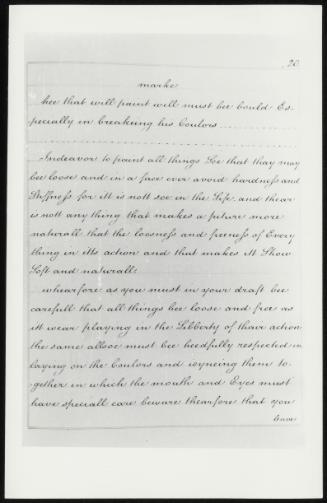 20
marke
hee that will paint will must bee bould Es=
pecially in breakeing his Coulors
Indeavor to paint all things Soe that thay may
bee loose and in a face ever avoid hardness and
Stiffness for itt is nott soe in the Life, and thear
is nott any thing that makes a picture more
naturall that the loosness and freeness of Every
thing in itts action and that makes it Show
Soft and naturall:
whearfore as you must in your draft bee
carefull that all things bee loose and free as
itt wear playing in the Libberty of thair action
the same allsoe must bee heedfully respected in
laying on the Coulors and ioyneing them to=
gether in which the mouth and Eyes must
have speciall care beware thearfore that you
Leave